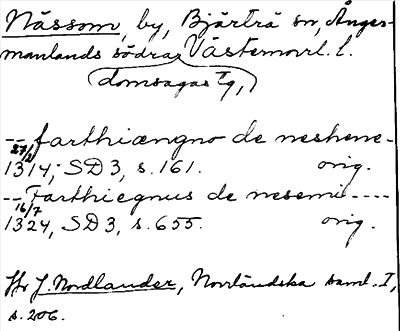 Nässom, by, Bjärtrå sn, Ånger-
manlands södra Västernorrl. l.
domsagas tg,
-- farthiængno de neshene-
27/2 1314, SD 3, s. 161. orig.
-- Farthiegnus de nesemi ----
16/7 1324, SD 3, s. 655. orig.
Hr J. Nordlander, Norrländska saml. I,
s. 206.